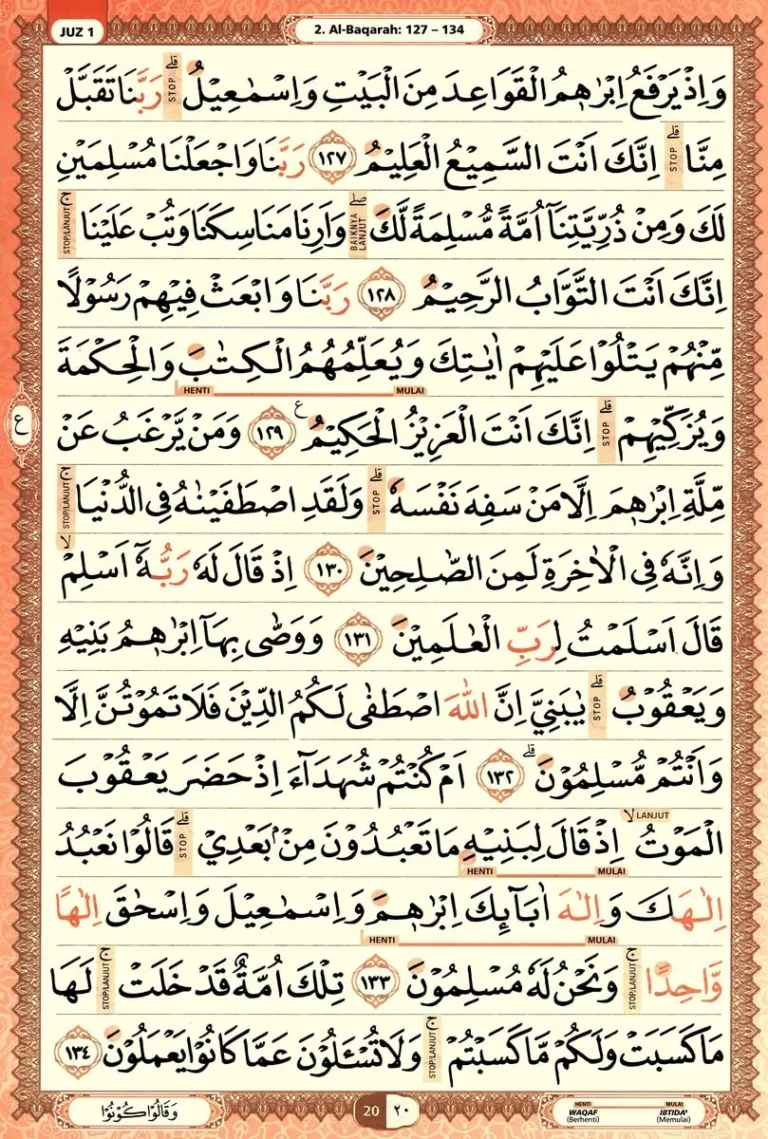 JUZ 1
2. Al-Baqarah: 127 – 134
وَاِذْ يَرْفَعُ اِبْرٰهٖمُ الْقَوَاعِدَ مِنَ الْبَيْتِ وَاِسْمٰعِيْلُۗ STOP رَبَّنَا تَقَبَّلْ
مِنَّاۗ STOP اِنَّكَ اَنْتَ السَّمِيْعُ الْعَلِيْمُ ١٢٧ رَبَّنَا وَاجْعَلْنَا مُسْلِمَيْنِ
لَكَ وَمِنْ ذُرِّيَّتِنَآ اُمَّةً مُّسْلِمَةً لَّكَۖ BAIKNYA LANJUT وَاَرِنَا مَنَاسِكَنَا وَتُبْ عَلَيْنَاۚ STOP/LANJUT
اِنَّكَ اَنْتَ التَّوَّابُ الرَّحِيْمُ ١٢٨ رَبَّنَا وَابْعَثْ فِيْهِمْ رَسُوْلًا
مِّنْهُمْ يَتْلُوْا عَلَيْهِمْ اٰيٰتِكَ وَيُعَلِّمُهُمُ الْكِتٰبَ وَالْحِكْمَةَ
MULAI HENTI
وَيُزَكِّيْهِمْۗ STOP اِنَّكَ اَنْتَ الْعَزِيْزُ الْحَكِيْمُ ࣖ ١٢٩ وَمَنْ يَّرْغَبُ عَنْ
ع
مِّلَّةِ اِبْرٰهٖمَ اِلَّا مَنْ سَفِهَ نَفْسَهٗۗ STOP وَلَقَدِ اصْطَفَيْنٰهُ فِى الدُّنْيَاۚ STOP/LANJUT
وَاِنَّهٗ فِى الْاٰخِرَةِ لَمِنَ الصّٰلِحِيْنَ ١٣٠ اِذْ قَالَ لَهٗ رَبُّهٗٓ اَسْلِمْۙ
قَالَ اَسْلَمْتُ لِرَبِّ الْعٰلَمِيْنَ ١٣١ وَوَصّٰى بِهَآ اِبْرٰهٖمُ بَنِيْهِ
وَيَعْقُوْبُۗ STOP يٰبَنِيَّ اِنَّ اللّٰهَ اصْطَفٰى لَكُمُ الدِّيْنَ فَلَا تَمُوْتُنَّ اِلَّا
وَاَنْتُمْ مُّسْلِمُوْنَۗ ١٣٢ اَمْ كُنْتُمْ شُهَدَآءَ اِذْ حَضَرَ يَعْقُوْبَ
الْمَوْتُۙ LANJUT اِذْ قَالَ لِبَنِيْهِ مَا تَعْبُدُوْنَ مِنْۢ بَعْدِيْۗ STOP قَالُوْا نَعْبُدُ
MULAI HENTI
اِلٰهَكَ وَاِلٰهَ اٰبَآئِكَ اِبْرٰهٖمَ وَاِسْمٰعِيْلَ وَاِسْحٰقَ اِلٰهًا
MULAI HENTI
وَّاحِدًاۚ STOP/LANJUT وَنَحْنُ لَهٗ مُسْلِمُوْنَ ١٣٣ تِلْكَ اُمَّةٌ قَدْ خَلَتْۚ STOP/LANJUT لَهَا
مَا كَسَبَتْ وَلَكُمْ مَّا كَسَبْتُمْۚ STOP/LANJUT وَلَا تُسْـَٔلُوْنَ عَمَّا كَانُوْا يَعْمَلُوْنَ ١٣٤
وَقَالُوْا كُوْنُوْا
20 ٢٠
HENTI MULAI
WAQAF IBTIDA'
(Berhenti) (Memulai)